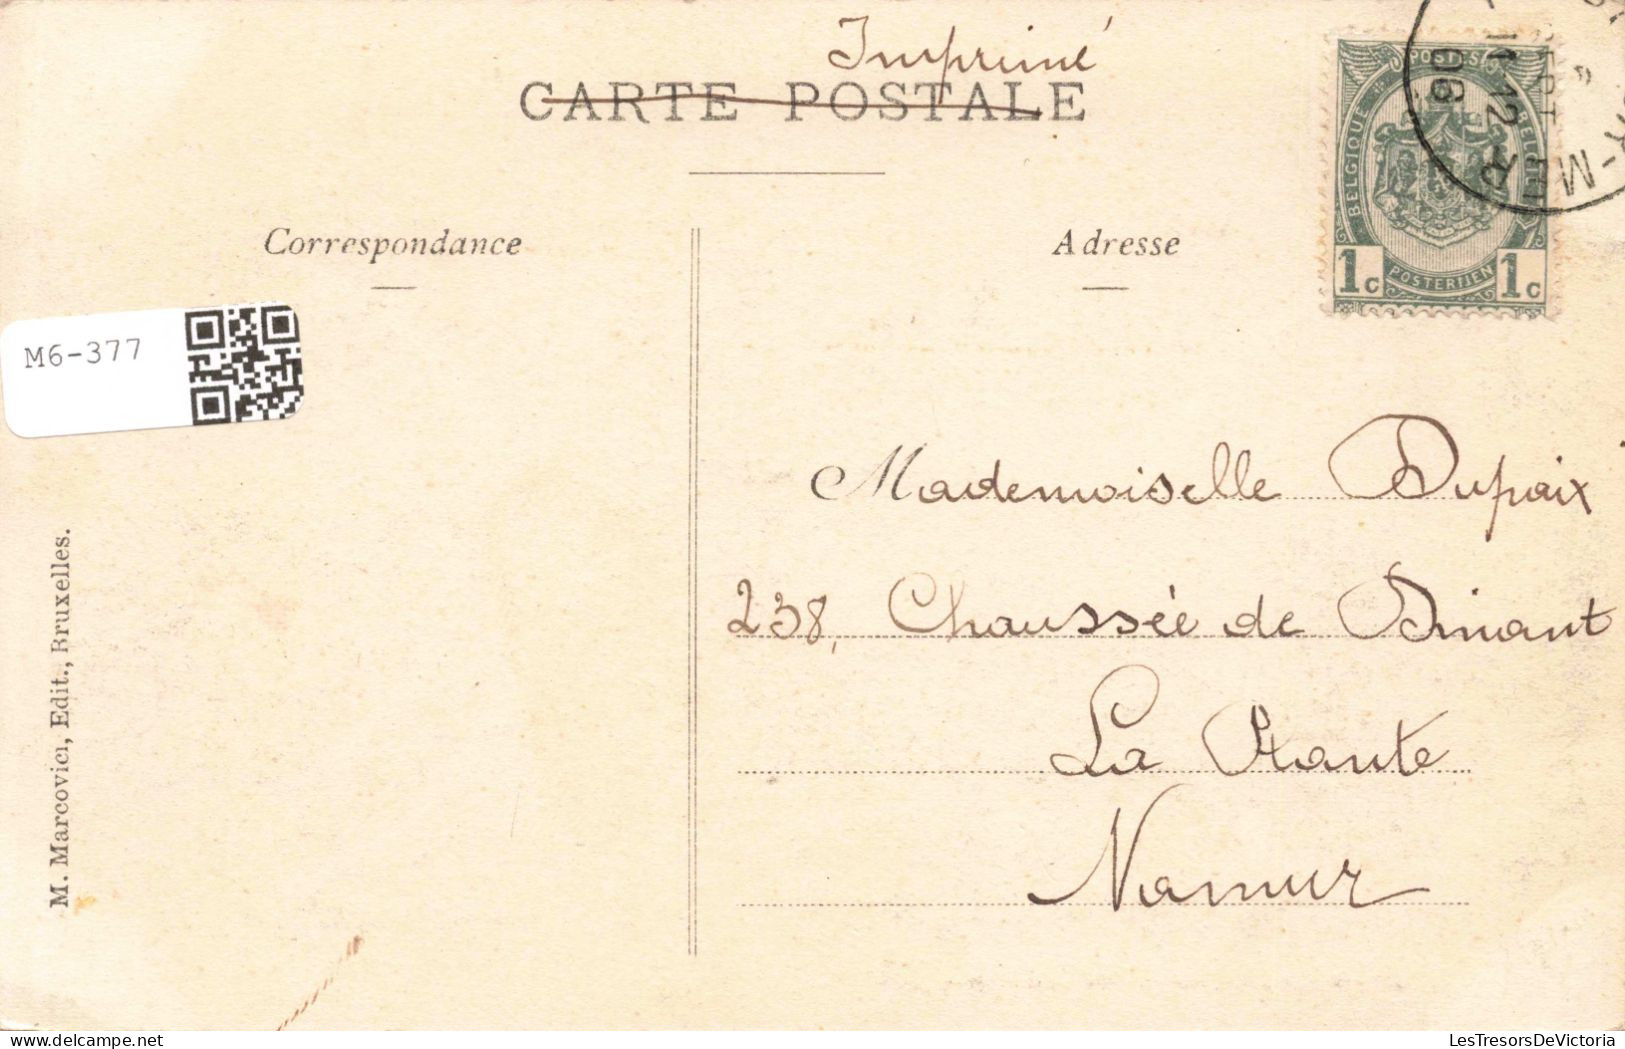 Imprimé
CARTE POSTALE
Correspondance
Adresse
POSTES
BELGIQUE
BELGIË
1c POSTERIJEN 1c
SEPT
11-12
06
M6-377
Mademoiselle Dupaix
238, Chaussée de Dinant
La Plante
Namur
M. Marcovici, Edit., Bruxelles.
LesTresorsDeVictoria